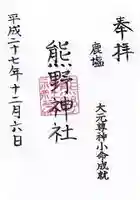 奉拝
大元尊神小命成就
熊野神社
平成二十七年十二月六日